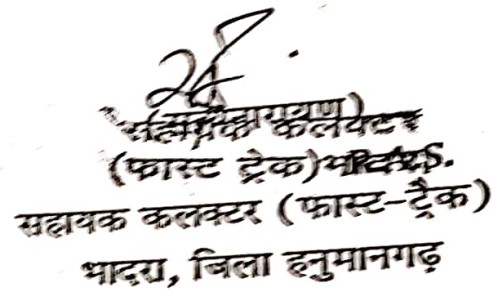 सहायक कलक्टर
(फास्ट ट्रेक) R.A.S.
सहायक कलक्टर (फास्ट-ट्रैक)
भादरा, जिला हनुमानगढ़